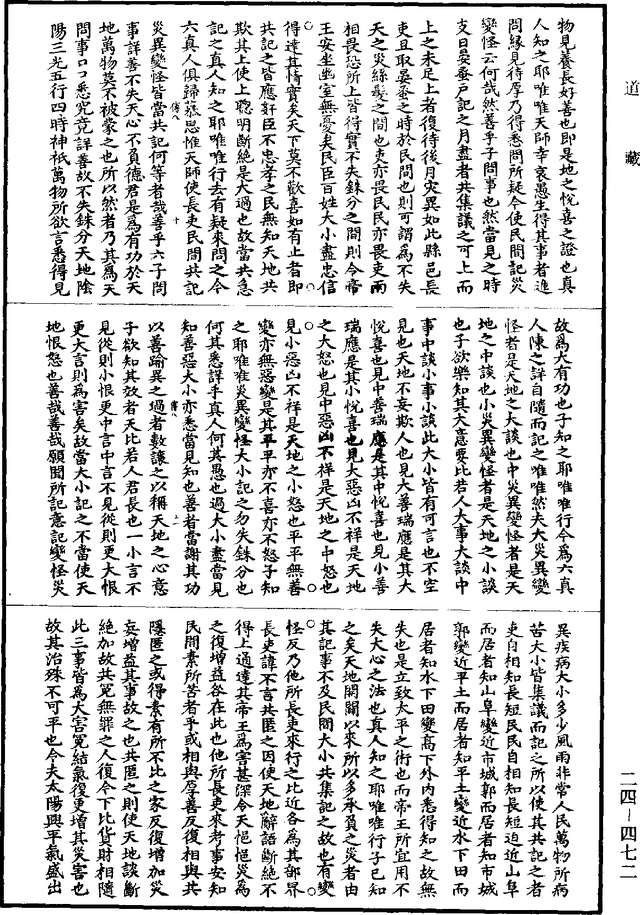 道藏
物見養長好善也即是地之悅喜之證也真
人知之耶唯唯天師幸哀愚生得其事者進
問緣見待厚乃得悉問所疑今使民間記災
變怪云何哉然善乎子問事也然當見之時
支日晏蚤戶記之月盡者共集議之可上而
上之未足上者復待後月灾異如此縣邑長
吏且取晏蚤之時於民間也則可謂為不失
天之災絲髮之間也吏亦畏民民亦畏吏兩
相畏恐所上皆得實不失銖分之間則令帝
王安坐幽室無憂矣民臣百姓大小盡忠信
得達其情實矣天下莫不歡喜如有止者即
共記之皆應奸臣不忠孝之民無知天地共
欺其上使上聰明斷絕是大過也故當共急
記之真人知之耶唯唯行去有疑來問之今
六真人俱歸慕思惟天師使長吏民間共記
災異變怪皆當共記何等者哉善乎六子問
事詳善不失天心不負德君是為有功於天
地萬物莫不被蒙之也所以然者乃其為天
問事口口悉究竟詳善故不失銖分天地陰
陽三光五行四時神祇萬物所欲言悉得見
故為大有功也子知之耶唯唯行今為六真
人陳之詳自隨而記之唯唯然夫大災異變
怪者是天地之大談也中災異變怪者是天
地之中談也小災異變怪者是天地之小談
也子欲樂知其大意要比若人大事大談中
事中談小事小談此大小皆有可言也不空
見也天地不妄欺人也見大善瑞應是其大
悅喜也見中善瑞應是其中悅喜也見小善
瑞應是其小悅喜也見大惡凶不祥是天地
之大怒也見中惡凶不祥是天地之中怒也
見小惡凶不祥是天地之小怒也平平無善
變亦無惡變是其平平亦不喜亦不怒子知
之耶唯唯災異變怪大小記之勿失銖分也
何其悉詳乎真人何其愚也過大小盡當見
知善惡大小亦悉當見知也善者當謝其功
以善踰異之過者數讓之以稱天地之心意
子欲知其效者天比若人君長也一小言不
見從則小恨更中言中言不見從則更大恨
更大言則為害矣故當大小記之不當使天
地恨怒也善哉善哉願聞所記意記變怪災
異疾病大小多少風雨非常人民萬物所病
苦大小皆集議而記之所以使其共記之者
吏自相知長短民民自相知長短迫近山阜
而居者知山阜變近市城郭而居者知市城
郭變近平土而居者知平土變近水下田而
居者知水下田變高下外內悉得知之故無
失也是立致太平之術也而帝王所宜用不
失大心之法也真人知之耶唯唯行子已知
之矣天地開闢以來所以多承負之災者由
其記事不及民間大小共集記之故也有變
怪反乃他所長吏來行之比近各為其部界
長吏諱不言共匿之因使天地辭語斷絕不
得上通達其帝王為害甚深令天悒悒災為
之復增益咎在此也他所長吏來考事安知
民間素所苦者乎或相與厚善反復相與共
隱匿之或得素有所不比之家反復增加災
妄增益其事故之也共匿之則使天地談斷
絕加故共冤無罪之人復令下比貨財相隨
此三事皆為大害冤結氣復更增其災害也
故其治殊不可平也今夫太陽興平氣盛出
二四-四七二